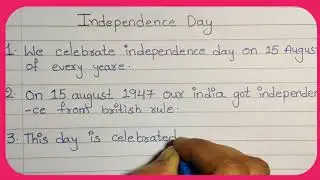 Independence Day
1. We celebrate independence day on 15 Augus
of every yeare.
2. On 15 august 1947 our india got independen
-ce from british rule.
3. This day is celebrated